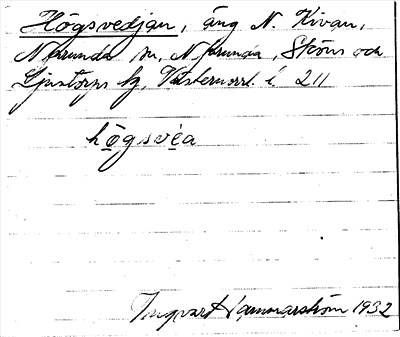 Högsvedjan, äng N. Kivan,
Njurunda sn, Njurunda, Sköns och
Ljustorps tg, Västernorrl. l 211
högsvéa
Ingvar Hammarström 1932